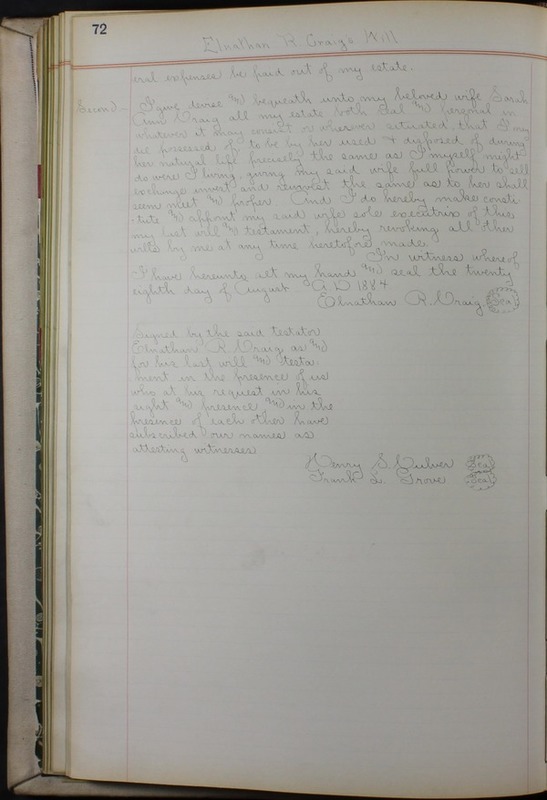 72
Elnathan R. Craig's Will
eral expenses be paid out of my estate.
Second – I give devise and bequeath unto my beloved wife Sarah
Ann Craig all my estate both Real and Personal in
whatever it may consist or wherever situated, that I may
die possessed of to be by her used & disposed of during
her natural life precisely the same as I myself might
do were I living, giving my said wife full power to sell
exchange invest and reinvest the same as to her shall
seem meet and proper. And I do hereby make consti-
tute and appoint my said wife sole executrix of this
my last will and testament, hereby revoking all other
wills by me at any time heretofore made.
In witness whereof
I have hereunto set my hand and seal the twenty
eighth day of August A D 1884
Elnathan R. Craig Seal
Signed by the said testator
Elnathan R. Craig as and
for his last will and testa-
ment in the presence of us
who at his request in his
sight and presence and in the
presence of each other have
subscribed our names as
attesting witnesses
Henry S. Culver Seal
Frank L. Grove Seal